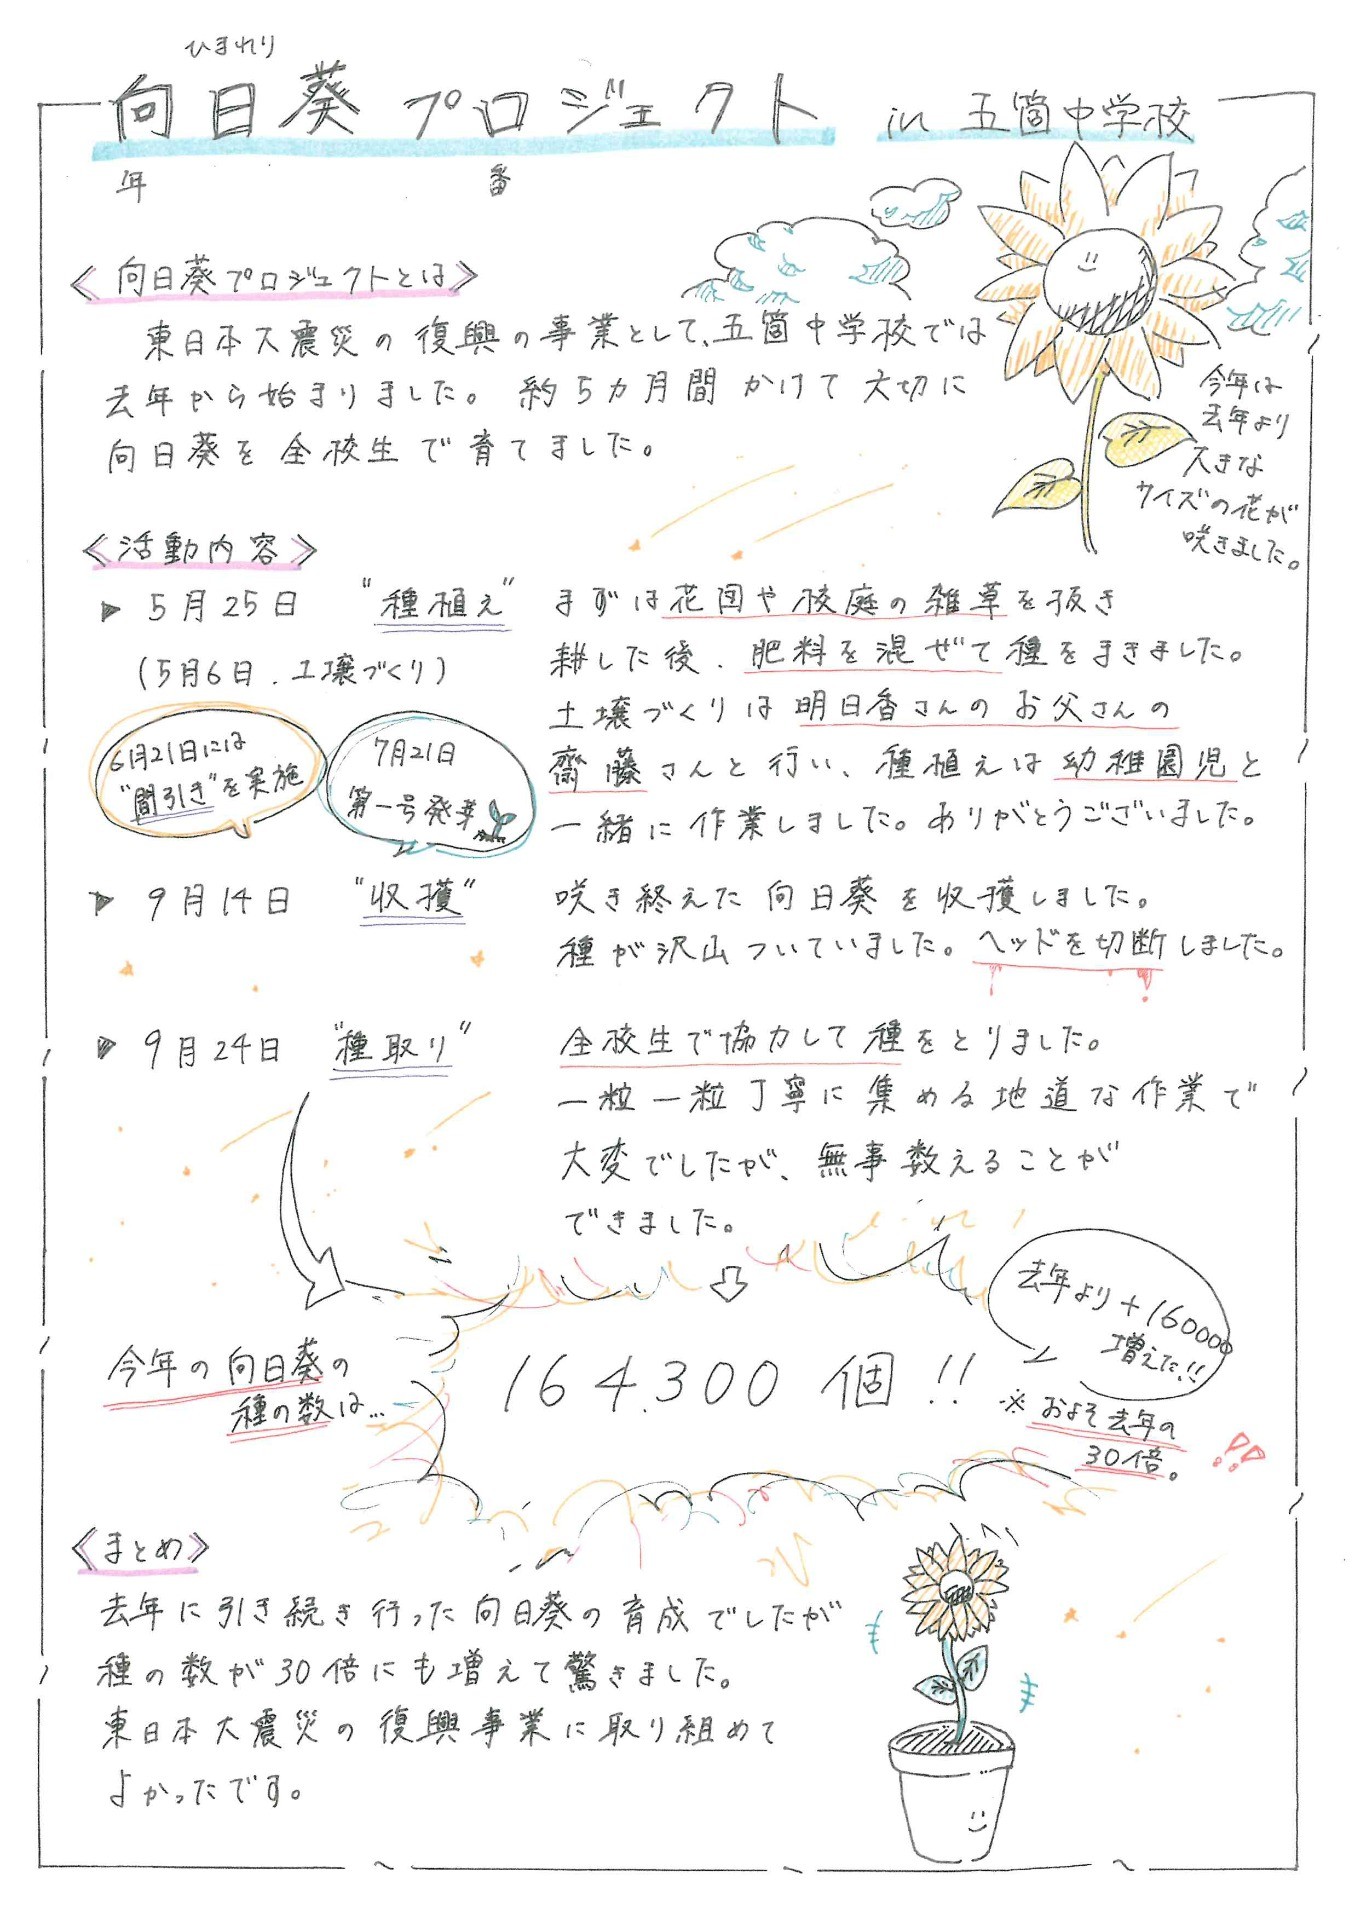 ひまわり
向日葵プロジェクト in 五箇中学校
年 番
《向日葵プロジェクトとは》
東日本大震災の復興の事業として、五箇中学校では
去年から始まりました。約5カ月間かけて大切に
向日葵を全校生で育てました。
今年は
去年より
大きな
サイズの花が
咲きました。
《活動内容》
▶ 5月25日 "種植え"
(5月6日、土壌づくり)
まずは花団や校庭の雑草を抜き
耕した後、肥料を混ぜて種をまきました。
土壌づくりは明日香さんのお父さんの
齋藤さんと行い、種植えは幼稚園児と
一緒に作業しました。ありがとうございました。
6月21日には
"間引き"を実施
7月21日
第一号発芽
▶ 9月14日 "収獲"
咲き終えた向日葵を収獲しました。
種が沢山ついていました。ヘッドを切断しました。
▶ 9月24日 "種取り"
全校生で協力して種をとりました。
一粒一粒丁寧に集める地道な作業で
大変でしたが、無事数えることが
できました。
今年の向日葵の
種の数は...
164.300個!!
去年より+160000
増えた!!
※およそ去年の
30倍。!!
《まとめ》
去年に引き続き行った向日葵の育成でしたが
種の数が30倍にも増えて驚きました。
東日本大震災の復興事業に取り組めて
よかったです。